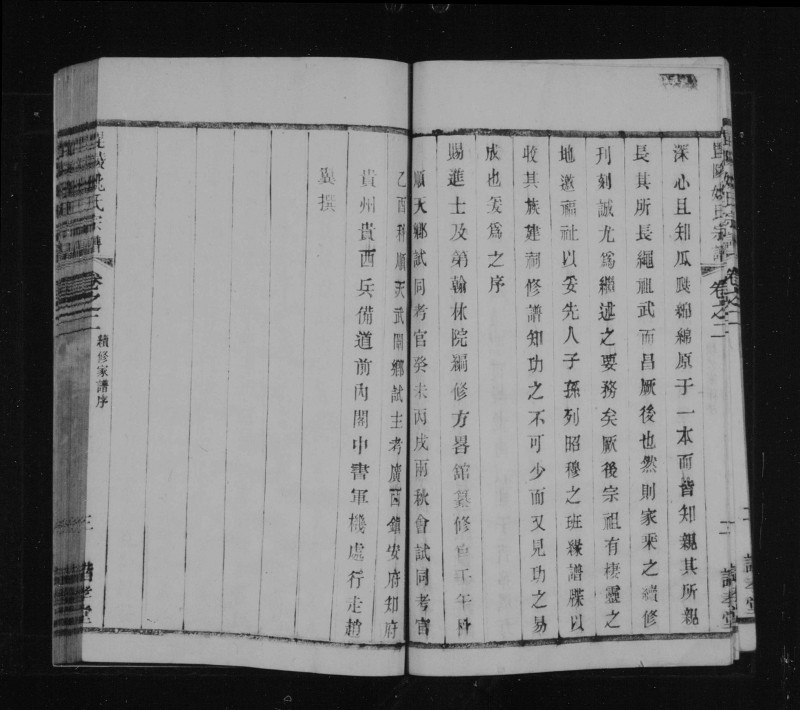 深心且知瓜瓞綿綿原于一本而皆知親其所親
長其所長繩祖武而昌厥後也然則家乘之續修
刊刻誠尤爲繼述之要務矣厥後宗祖有棲靈之
地邀福祉以妥先人子孫列昭穆之班緣譜牒以
收其族建祠修譜知功之不可少而又見功之易
成也爰爲之序
賜進士及第翰林院編修方畧館纂修官壬午科
順天鄉試同考官癸未丙戌兩秋會試同考官
乙酉科順天武闈鄉試主考廣西鎮安府知府
貴州貴西兵備道前內閣中書軍機處行走趙
翼撰
姚氏宗譜
卷之二
續修家譜序
三
卷之二
二